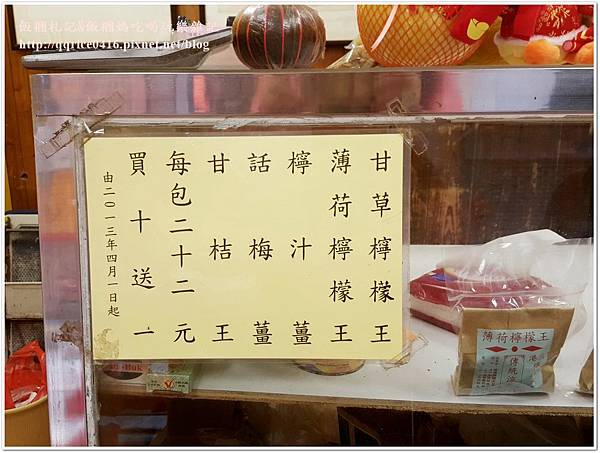 http://qqrice0416.pixnet.net/blog
甘草檸檬王
薄荷檸檬王
檸汁薑
話梅薑
甘桔王
每包二十二元
買十送一
由二〇一三年四月一日起
薄荷檸檬王
傳統涼
港